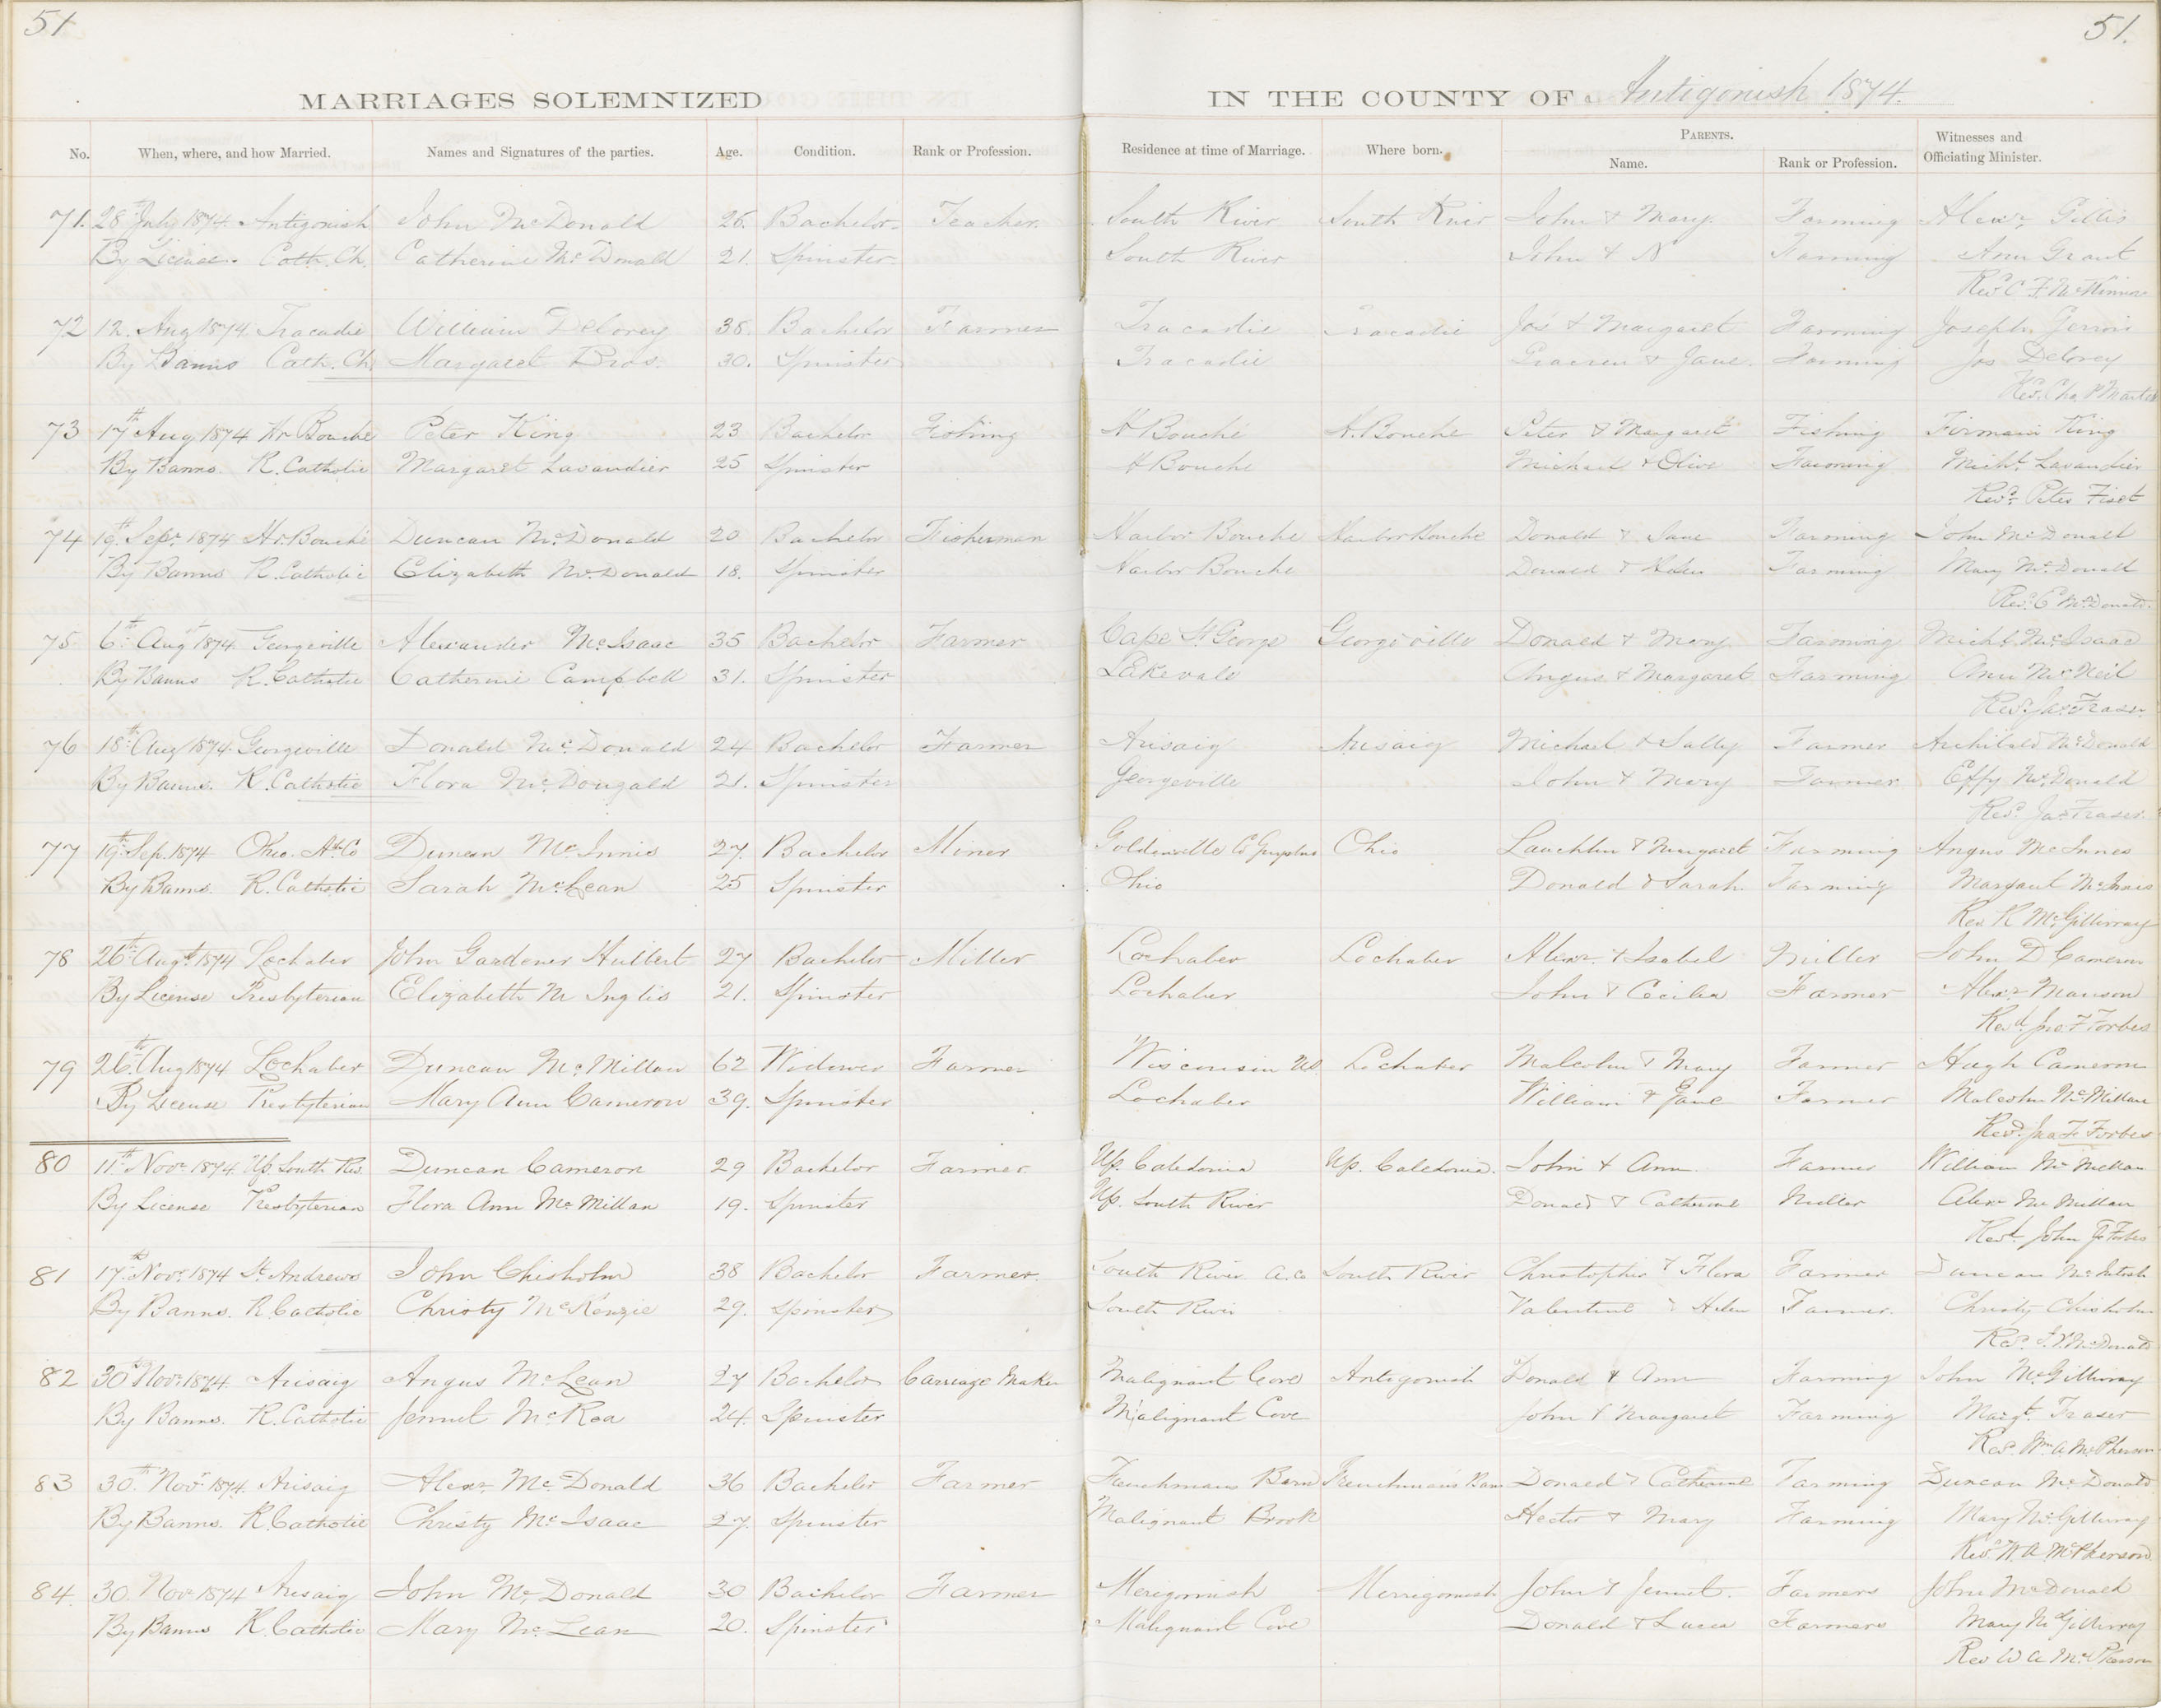 51
51.
MARRIAGES SOLEMNIZED IN THE COUNTY OF Antigonish 1874.
No. When, where, and how Married. Names and Signatures of the parties. Age. Condition. Rank or Profession. Residence at time of Marriage. Where born. PARENTS. Name. Rank or Profession. Witnesses and Officiating Minister.
71. 28th July 1874. Antigonish John McDonald 26. Bachelor Teacher. South River South River John & Mary Farming Alexr Gillis
By License. Cath. Ch. Catherine McDonald 21. Spinster South River John & N Farming Ann Grant
Revd C F McKinnon
72 12. Aug 1874 Tracadie William Delorey 38. Bachelor Farmer Tracadie Tracadie Jos & Margaret Farming Joseph
By Banns Cath. Ch. Margaret 30. Spinster Tracadie & Jane Farming Jos Delorey
Rev. Cha
73 17th Aug 1874 Hr Bouche Peter King 23 Bachelor Fishing H Bouche H. Bouche Peter & Margaret Fishing Firmain King
By Banns. R. Catholic Margaret Lavandier 25 Spinster H Bouche Michael & Olive Farming Michl Lavandier
Revd Peter Fiset
74 19th Sepr 1874 Hr. Bouche Duncan McDonald 20 Bachelor Fisherman Harbor Bouche Harbor Bouche Donald & Jane Farming John McDonald
By Banns R. Catholic Elizabeth McDonald 18. Spinster Harbor Bouche Donald & Helen Farming Mary McDonald
Revd C McDonald.
75 6th Augt 1874 Georgeville Alexander McIsaac 35 Bachelor Farmer Cape St George Georgeville Donald & Mary Farming Michl McIsaac
By Banns R. Catholic Catherine Campbell 31. Spinster Lakevale Angus & Margaret Farming Ann McNeil
Revd Jas Fraser
76 18th Aug 1874. Georgeville Donald McDonald 24 Bachelor Farmer Arisaig Arisaig Michael & Sally Farmer Archibald McDonald
By Banns. R. Catholic Flora McDougald 21. Spinster Georgeville John & Mary Farmer Effy McDonald
Revd Jas Fraser.
77 19th Sep. 1874 Ohio. At. Co Duncan McInnis 27. Bachelor Miner Goldenville Co Guysboro Ohio Lauchlin & Margaret Farming Angus McInnes
By Banns. R. Catholic Sarah McLean 25 Spinster Ohio Donald & Sarah. Farming Margaret McInnis
Rev R McGillivray
78 26th Augt 1874 Lochaber John Gardener Hulbert 27 Bachelor Miller Lochaber Lochaber Alexr & Isabel Miller John D Cameron
By License Presbyterian Elizabeth M Inglis 21. Spinster Lochaber John & Cecilia Farmer Alexr Manson
Revd. Jno. F Forbes
79 26th Aug 1874 Lochaber Duncan McMillan 62 Widower Farmer Wisconsin US. Lochaber Malcolm & Mary Farmer Hugh Cameron
By License Presbyterian Mary Ann Cameron 39. Spinster Lochaber William & Jane Farmer Malcolm McMillan
Revd. Jno F Forbes
80 11th Novr 1874 Up South Riv. Duncan Cameron 29 Bachelor Farmer Up. Caledonia Up. Caledonia. John & Ann Farmer William McMillan
By License Presbyterian Flora Ann McMillan 19. Spinster Up. South River Donald & Catherine Miller Alexr McMillan
Revd. John F Forbes
81 17th Novr 1874 St. Andrews John Chisholm 38 Bachelor Farmer. South River A. Co South River Christopher & Flora Farmer Duncan McIntosh
By Banns. R Catholic Christy McKenzie 29. Spinster South River Valentine & Helen Farmer. Christy Chisholm
Revd. J. V. McDonald
82 30th Novr. 1874. Arisaig Angus McLean 27 Bachelor Carriage Maker Malignant Cove Antigonish Donald & Ann Farming John McGillivray
By Banns. R. Catholic Jennet McRea 24. Spinster Malignant Cove John & Margaret Farming Margt. Fraser
Revd. Wm A McPherson
83 30th Novr 1874. Arisaig Alexr McDonald 36 Bachelor Farmer Frenchmans Barn Frenchmans Barn Donald & Catherine Farming Duncan McDonald
By Banns. R. Catholic Christy McIsaac 27. Spinster Malignant Brook Hector & Mary Farming Mary McGillivray
Revd W. A McPherson
84. 30. Nov 1874 Arisaig John McDonald 30 Bachelor Farmer Merigomish Merrigomish John & Jennet. Farmers John McDonald
By Banns R. Catholic Mary McLean 20. Spinster Malignant Cove Donald & Farmers Mary McGillivray
Rev W A McPherson